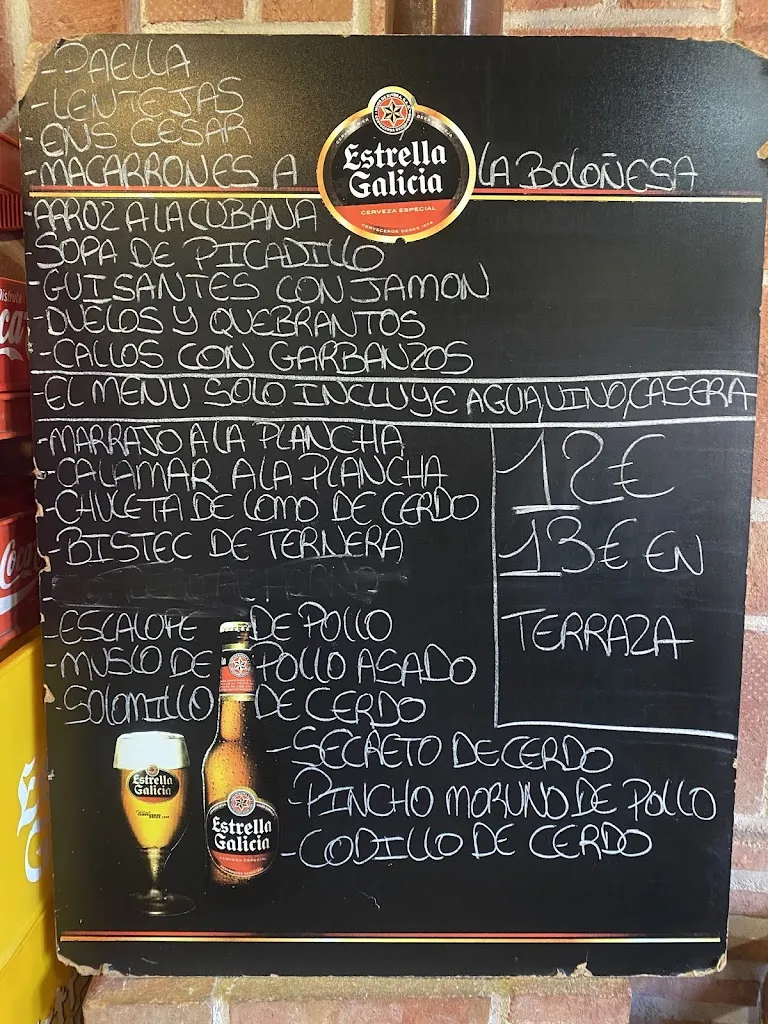 -PAELLA
-LENTEJAS
-ENS CESAR
-MACARRONES A LA BOLOÑESA
Estrella
Galicia
CERVEZA ESPECIAL
CERVECEROS DESDE 1906
-ARROZ A LA CUBANA
SOPA DE PICADILLO
-GUISANTES CON JAMON
-DUELOS Y QUEBRANTOS
-CALLOS CON GARBANZOS
-EL MENU SOLO INCLUYE AGUA,VINO,CASERA
-MARRAJO A LA PLANCHA
-CALAMAR A LA PLANCHA
-CHULETA DE LOMO DE CERDO
-BISTEC DE TERNERA
12€
13€ EN
TERRAZA
-ESCALOPE DE POLLO
-MUSLO DE POLLO ASADO
-SOLOMILLO DE CERDO
-SECRETO DE CERDO
-PINCHO MORUNO DE POLLO
-CODILLO DE CERDO
Estrella
Galicia
Estrella
Galicia
CERVEZA ESPECIAL